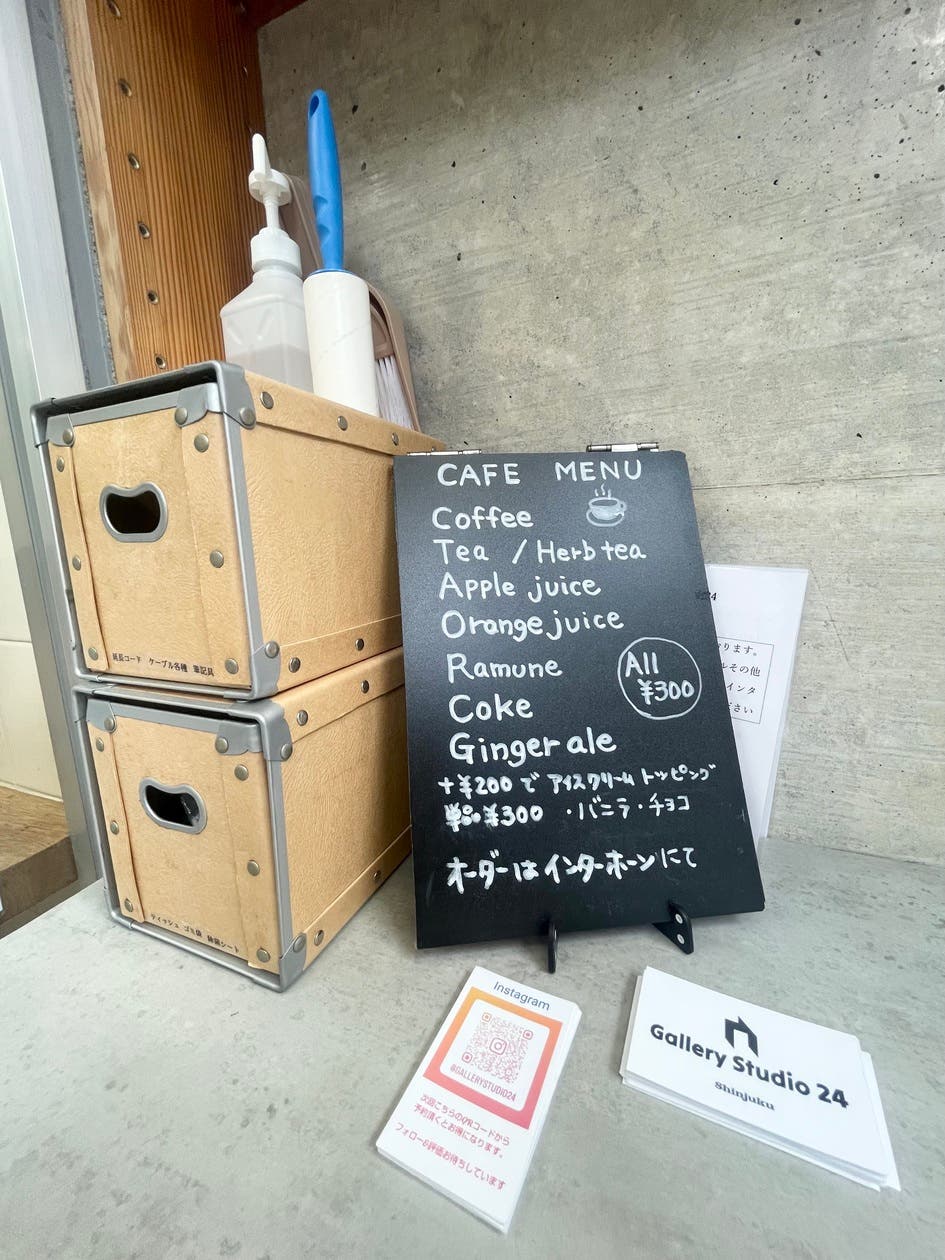 CAFE MENU
Coffee
Tea / Herb tea
Apple juice
Orange juice
Ramune
All
¥300
Coke
Ginger ale
+¥200で アイスクリーム トッピング
単品¥300 ・バニラ・チョコ
オーダーは インターホーンにて
延長コード ケーブル各種 筆記具
ティッシュ ゴミ袋 除菌シート
ります。
ルその他
インタ
ださい
Instagram
@GALLERYSTUDIO24
次回こちらのQRコードから
予約頂くとお得になります。
フォロー&評価お待ちしています
Gallery Studio 24
Shinjuku